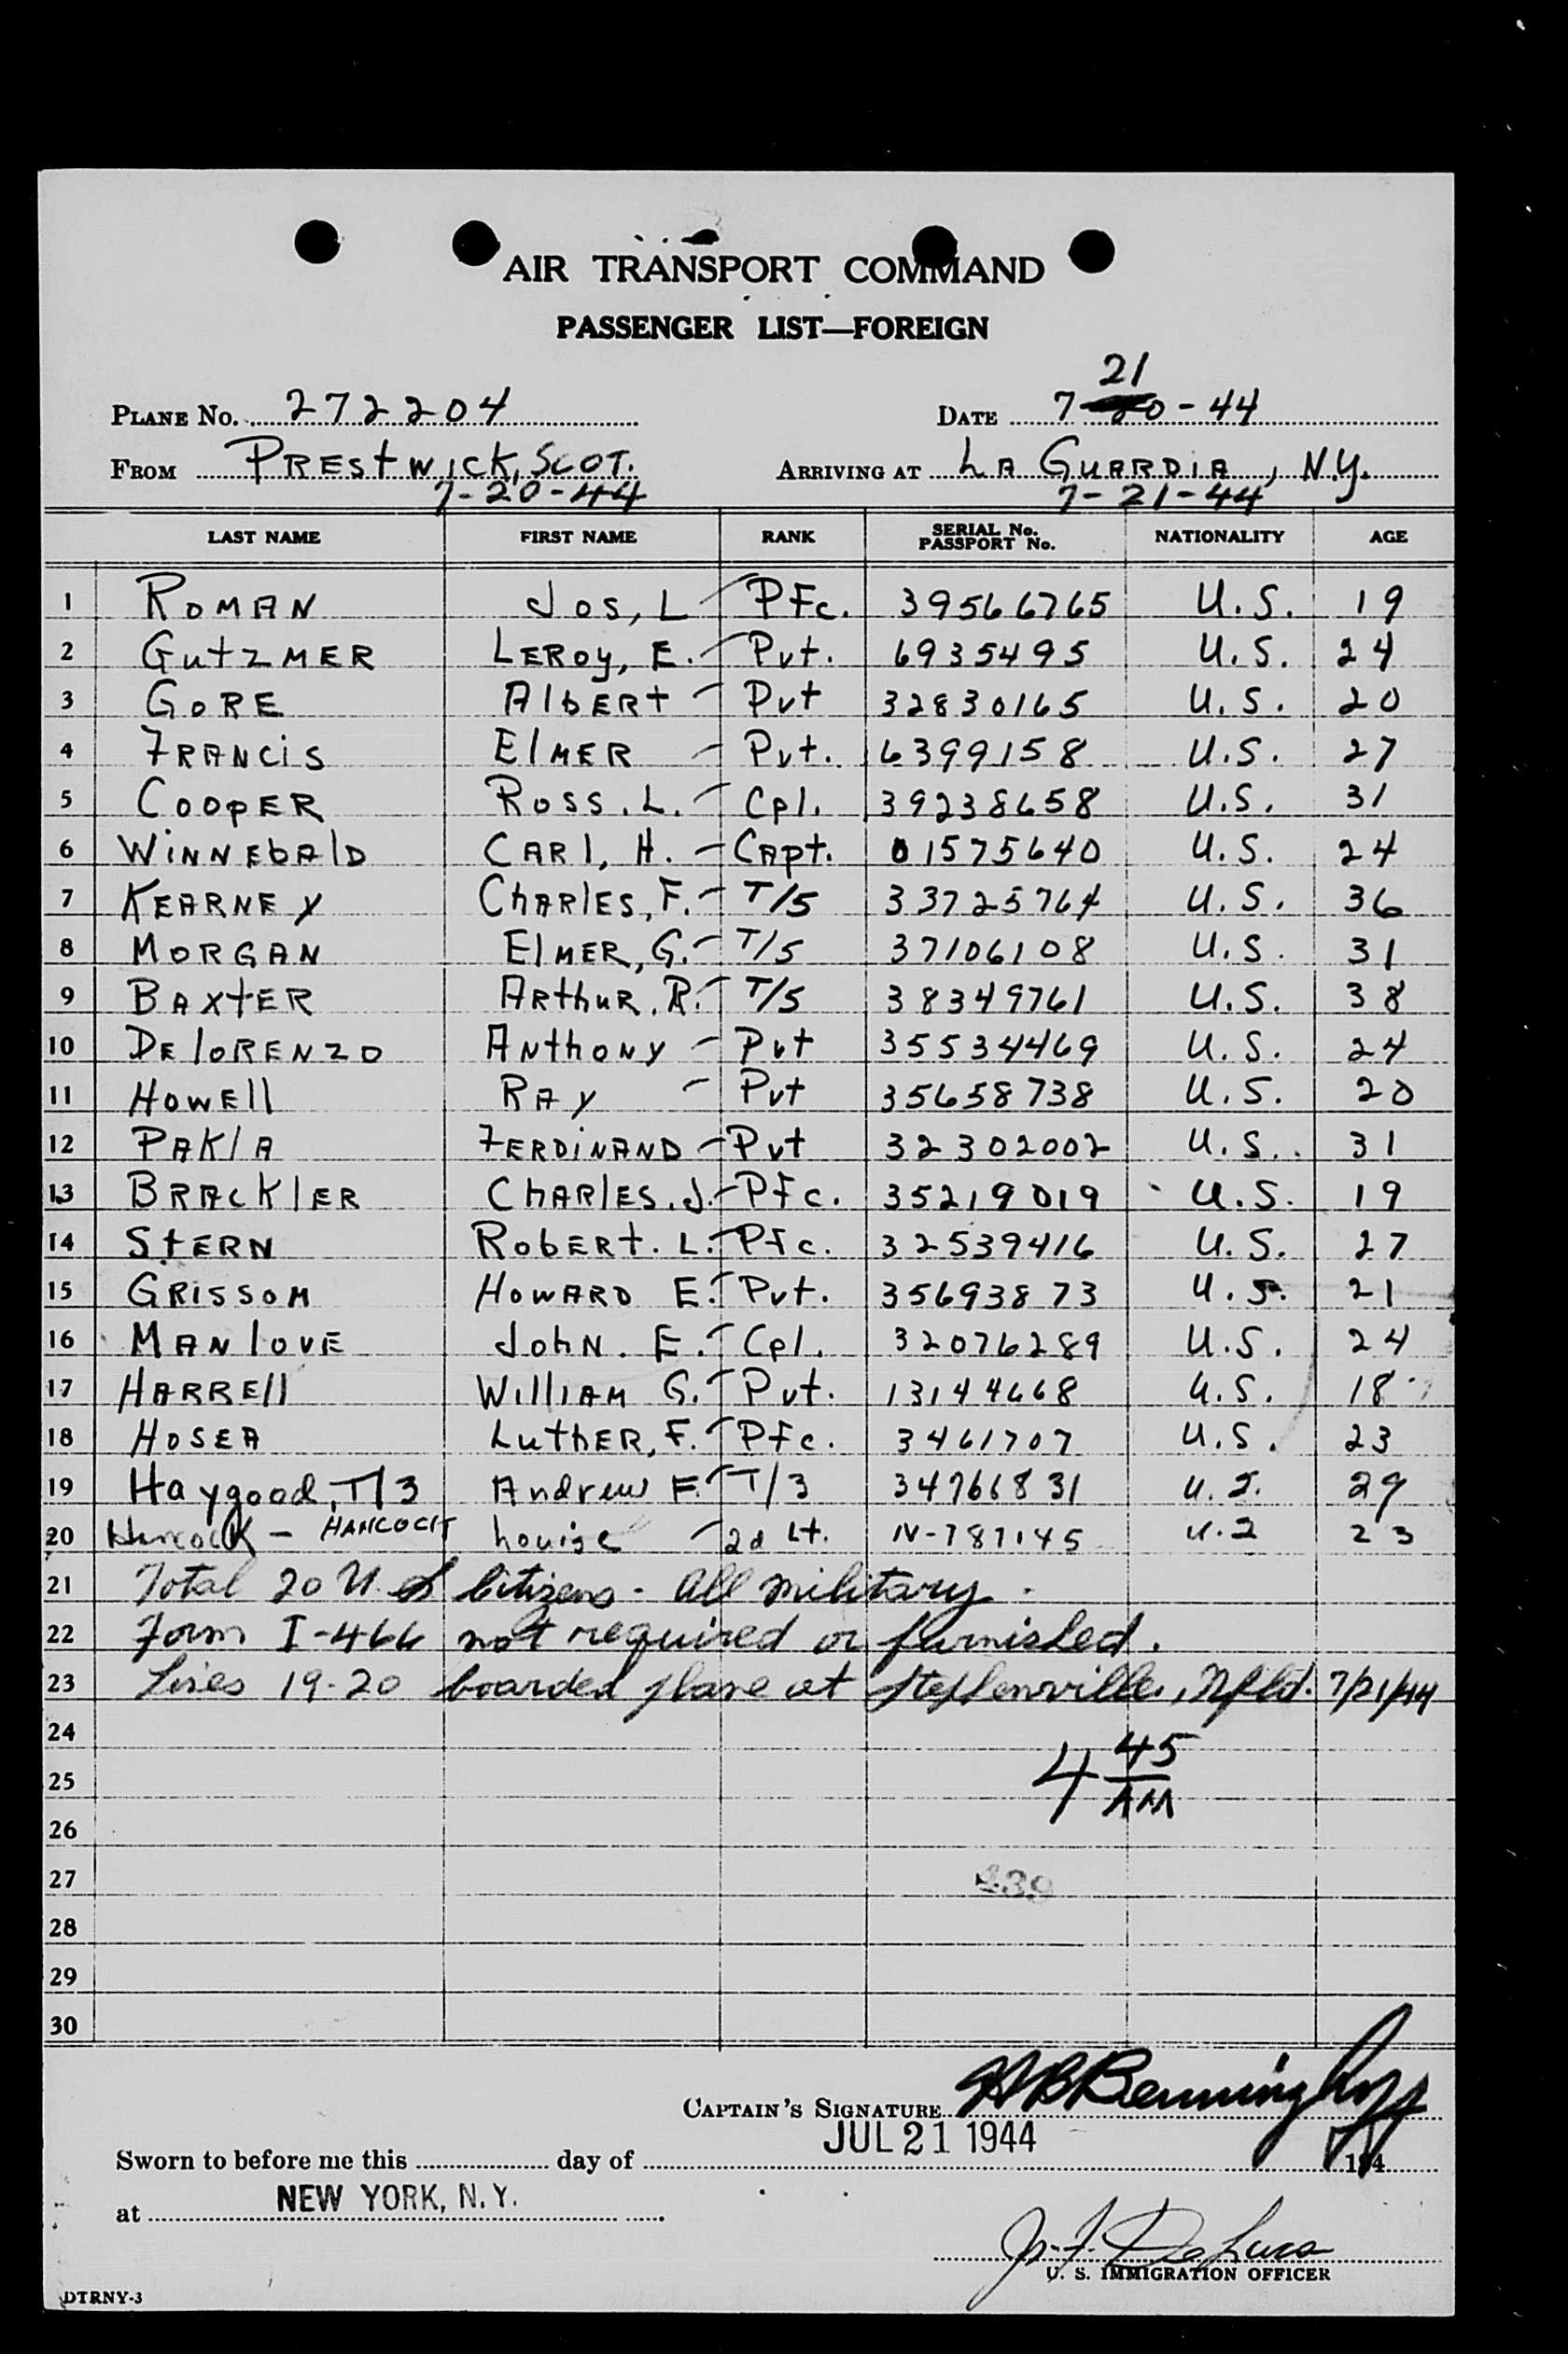 AIR TRANSPORT COMMAND
PASSENGER LIST—FOREIGN
21
PLANE No. 272204 DATE 7-20-44
FROM PRESTWICK, SCOT. ARRIVING AT LA GUARDIA, N.Y.
7-20-44 7-21-44
LAST NAME FIRST NAME RANK SERIAL No. PASSPORT No. NATIONALITY AGE
1 ROMAN JOS, L PFc. 39566765 U.S. 19
2 GUTZMER LEROY, E. Pvt. 6935495 U.S. 24
3 GORE AlbERT Pvt 32830165 U.S. 20
4 FRANCIS ElMER Pvt. 6399158 U.S. 27
5 COOPER ROSS. L. Cpl. 39238658 U.S. 31
6 WINNEbAlD CARl, H. CApt. 01575640 U.S. 24
7 KEARNEY ChARlES, F. T/5 33725764 U.S. 36
8 MORGAN ElMER, G. T/5 37106108 U.S. 31
9 BAXtER ARthUR. R. T/5 38349761 U.S. 38
10 DElORENZO ANthONY Pvt 35534469 U.S. 24
11 HOWEll RAY Pvt 35658738 U.S. 20
12 PAKlA FERDINAND Pvt 32302002 U.S. 31
13 BRACKlER ChARlES. J. PFc. 35219019 U.S. 19
14 StERN RObERt. L. PFc. 32539416 U.S. 27
15 GRISSOM HOWARD E. Pvt. 35693873 U.S. 21
16 MANlOVE JOhN. E. Cpl. 32076289 U.S. 24
17 HARREll WIllIAM G. Pvt. 13144668 U.S. 18
18 HOSEA LuthER, F. PFc. 3461707 U.S. 23
19 Haygood, T/3 Andrew F. T/3 34766831 U.S. 29
20 Hancock - HANCOCK Louise 2d Lt. N-787145 U.S 23
21 Total 20 U.S Citizens - All military.
22 Form I-466 not required or furnished.
23 Lines 19-20 boarded plane at Stephenville, Nfld. 7/21/44
24
4 45 AM
25
26
27 439
28
29
30
CAPTAIN'S SIGNATURE HB Benninghoff
JUL 21 1944
Sworn to before me this day of 194
at NEW YORK, N.Y.
J. F. DeLuca
U. S. IMMIGRATION OFFICER
DTRNY-3